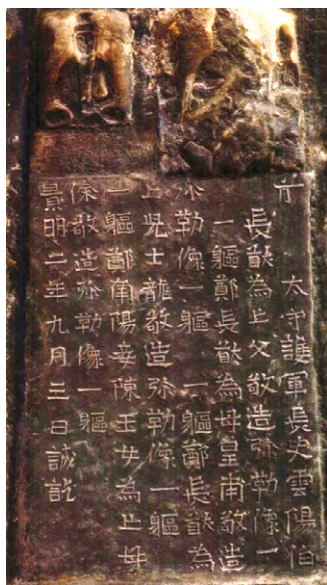 太守護軍長史雲陽伯
長猷為亡父敬造弥勒像一
一軀鄭長猷為母皇甫敬造
弥勒像一軀 一軀鄭長猷為
亡兒士龍敬造弥勒像一軀
一軀鄭南陽妾陳王女為亡母
徐敬造弥勒像一軀
景明二年九月三日誡訖